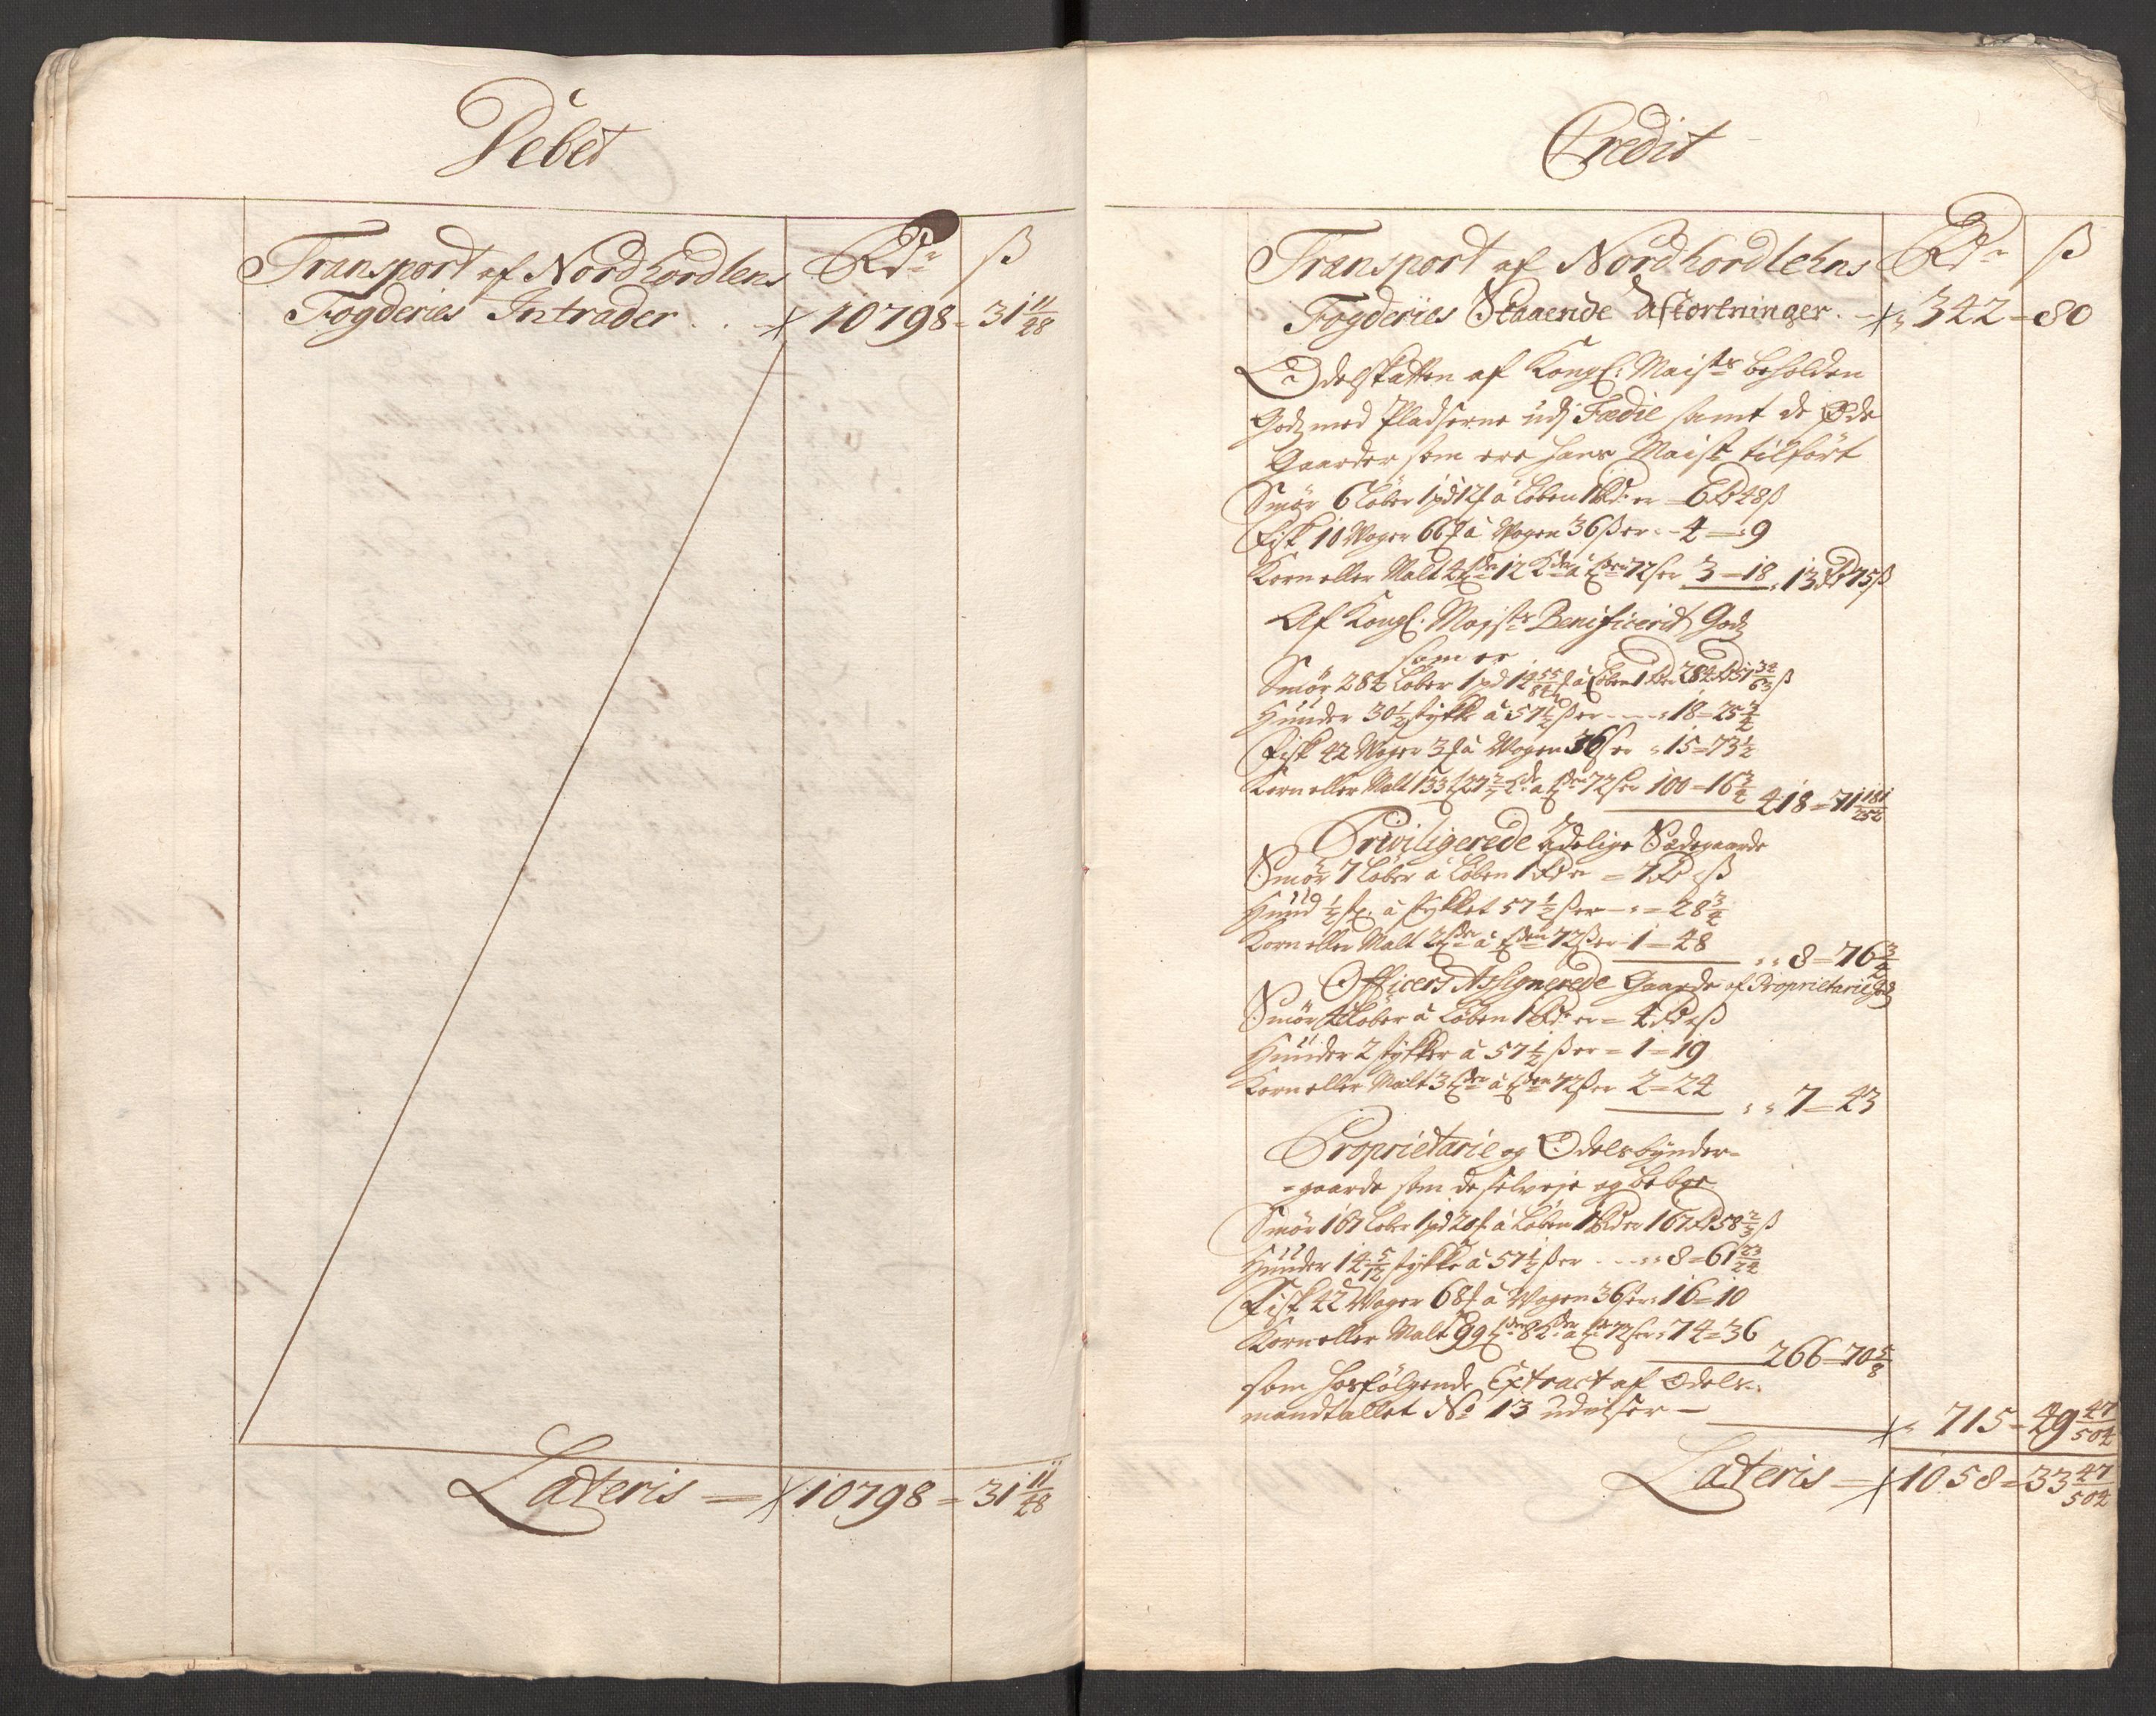 Debet
Rdr ß
Transport af Nordhordlens
Fogderies Intrader . . 10798 = 31 11/48
Lateris = 10798 = 31 11/48
Credit
Transport af Nordhordlehns Rdr ß
Fogderies Staaende Afkortninger . 342 = 80
Odelskatten af Kongl: Maists beholden
Godz med Pladserne udj Fædie samt de Øde
Gaarder som ere hans Maist tilført
Smør 6 Løber 1 pd 12 à Løben 1 Rdr er 6 Rd 48 ß
Fisk 10 Woger 66 à Wogen 36 ß er 4 = 9
Korn eller Malt 4 12 à 72 ß er 3 = 18 13 Rd 75 ß
Af Kongl: Maists Benificerit Godz
som er
Smør 284 Løber 1 pd 14 55/84 à Løben 1 Rdr 284 Rd 51 34/63 ß
Huuder 30 1/2 stykke à 57 1/2 ß er 18 = 25 3/4
Fisk 42 Woger 3 à Wogen 36 ß er 15 = 73 1/2
Korn eller Malt 133 27 2/7 à 72 ß er 100 = 16 3/4 418 = 71 181/252
Priviligerede Adelige Sædegaarde
Smør 7 Løber à Løben 1 Rdr er = 7 Rd ß
Huud 1/2 st. à stykket 57 1/2 ß er = 28 3/4
Korn eller Malt 2 à 72 ß er 1 = 48 8 = 76 3/4
Officers Assignerede Gaarde af Proprietarie Godz
Smør 4 Løber à Løben 1 Rdr er = 4 Rd ß
Huuder 2 stykker à 57 1/2 ß er = 1 = 19
Korn eller Malt 3 à 72 ß er 2 = 24 7 = 43
Proprietarie og Odelsbynder-
=gaarde som de selveje og beboe
Smør 167 Løber 1 pd 20 à Løben 1 Rdr er 167 Rd 58 2/3 ß
Huuder 14 5/12 stykke à 57 1/2 ß er 8 = 61 23/24
Fisk 42 Woger 68 à Wogen 36 ß er 16 = 10
Korn eller Malt 99 8 à 72 ß er 74 = 36 266 = 70 5/8
som hosfølgende Extract af Odels-
mandtallet No 13 udviser — 715 = 49 47/504
Lateris = 1058 = 33 47/504